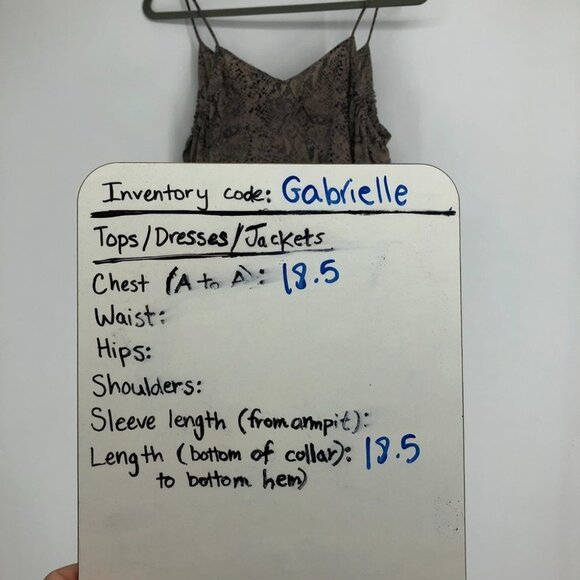 Inventory code: Gabrielle
Tops/Dresses/Jackets
Chest (A to A): 18.5
Waist:
Hips:
Shoulders:
Sleeve length (from armpit):
Length (bottom of collar): 18.5
to bottom hem)